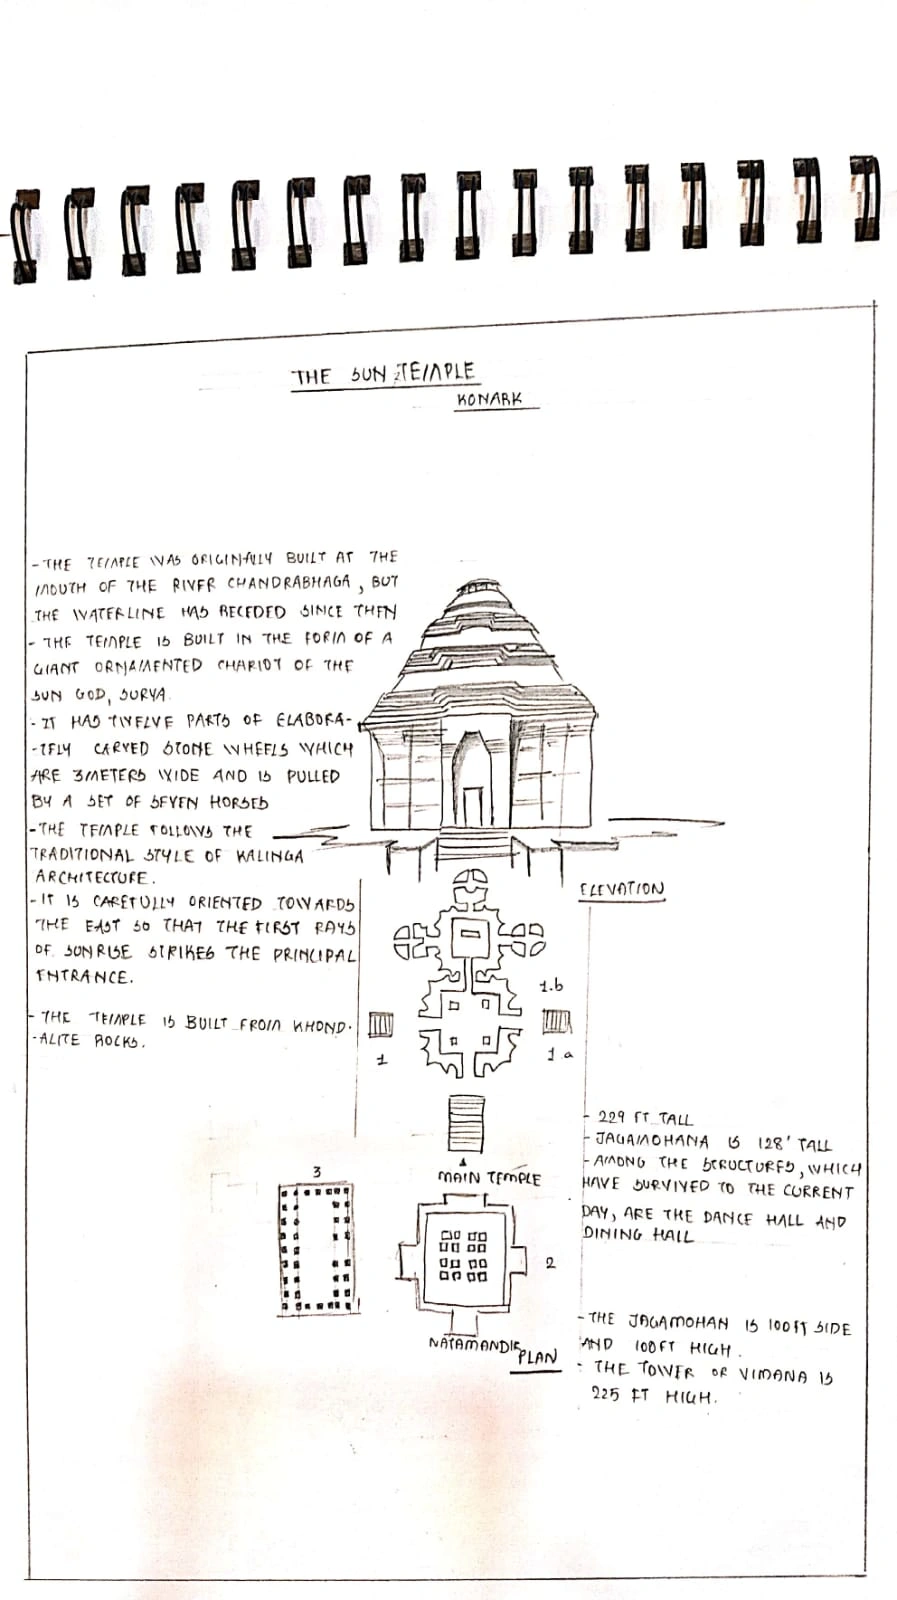 THE SUN TEMPLE
KONARK
- THE TEMPLE WAS ORIGINALLY BUILT AT THE
MOUTH OF THE RIVER CHANDRABHAGA, BUT
THE WATERLINE HAS RECEDED SINCE THEN
- THE TEMPLE IS BUILT IN THE FORM OF A
GIANT ORNAMENTED CHARIOT OF THE
SUN GOD, SURYA.
- IT HAS TWELVE PARTS OF ELABORA-
-TELY CARVED STONE WHEELS WHICH
ARE 3METERS WIDE AND IS PULLED
BY A SET OF SEVEN HORSES
- THE TEMPLE FOLLOWS THE
TRADITIONAL STYLE OF KALINGA
ARCHITECTURE.
- IT IS CAREFULLY ORIENTED TOWARDS
THE EAST SO THAT THE FIRST RAYS
OF SUNRISE STRIKES THE PRINCIPAL
ENTRANCE.
- THE TEMPLE IS BUILT FROM KHOND-
-ALITE ROCKS.
ELEVATION
1.b
1
1.a
MAIN TEMPLE
3
2
NATAMANDIR
PLAN
- 229 FT TALL
- JAGAMOHANA IS 128' TALL
- AMONG THE STRUCTURES, WHICH
HAVE SURVIVED TO THE CURRENT
DAY, ARE THE DANCE HALL AND
DINING HALL
- THE JAGAMOHAN IS 100FT SIDE
AND 100FT HIGH.
- THE TOWER OR VIMANA IS
225 FT HIGH.